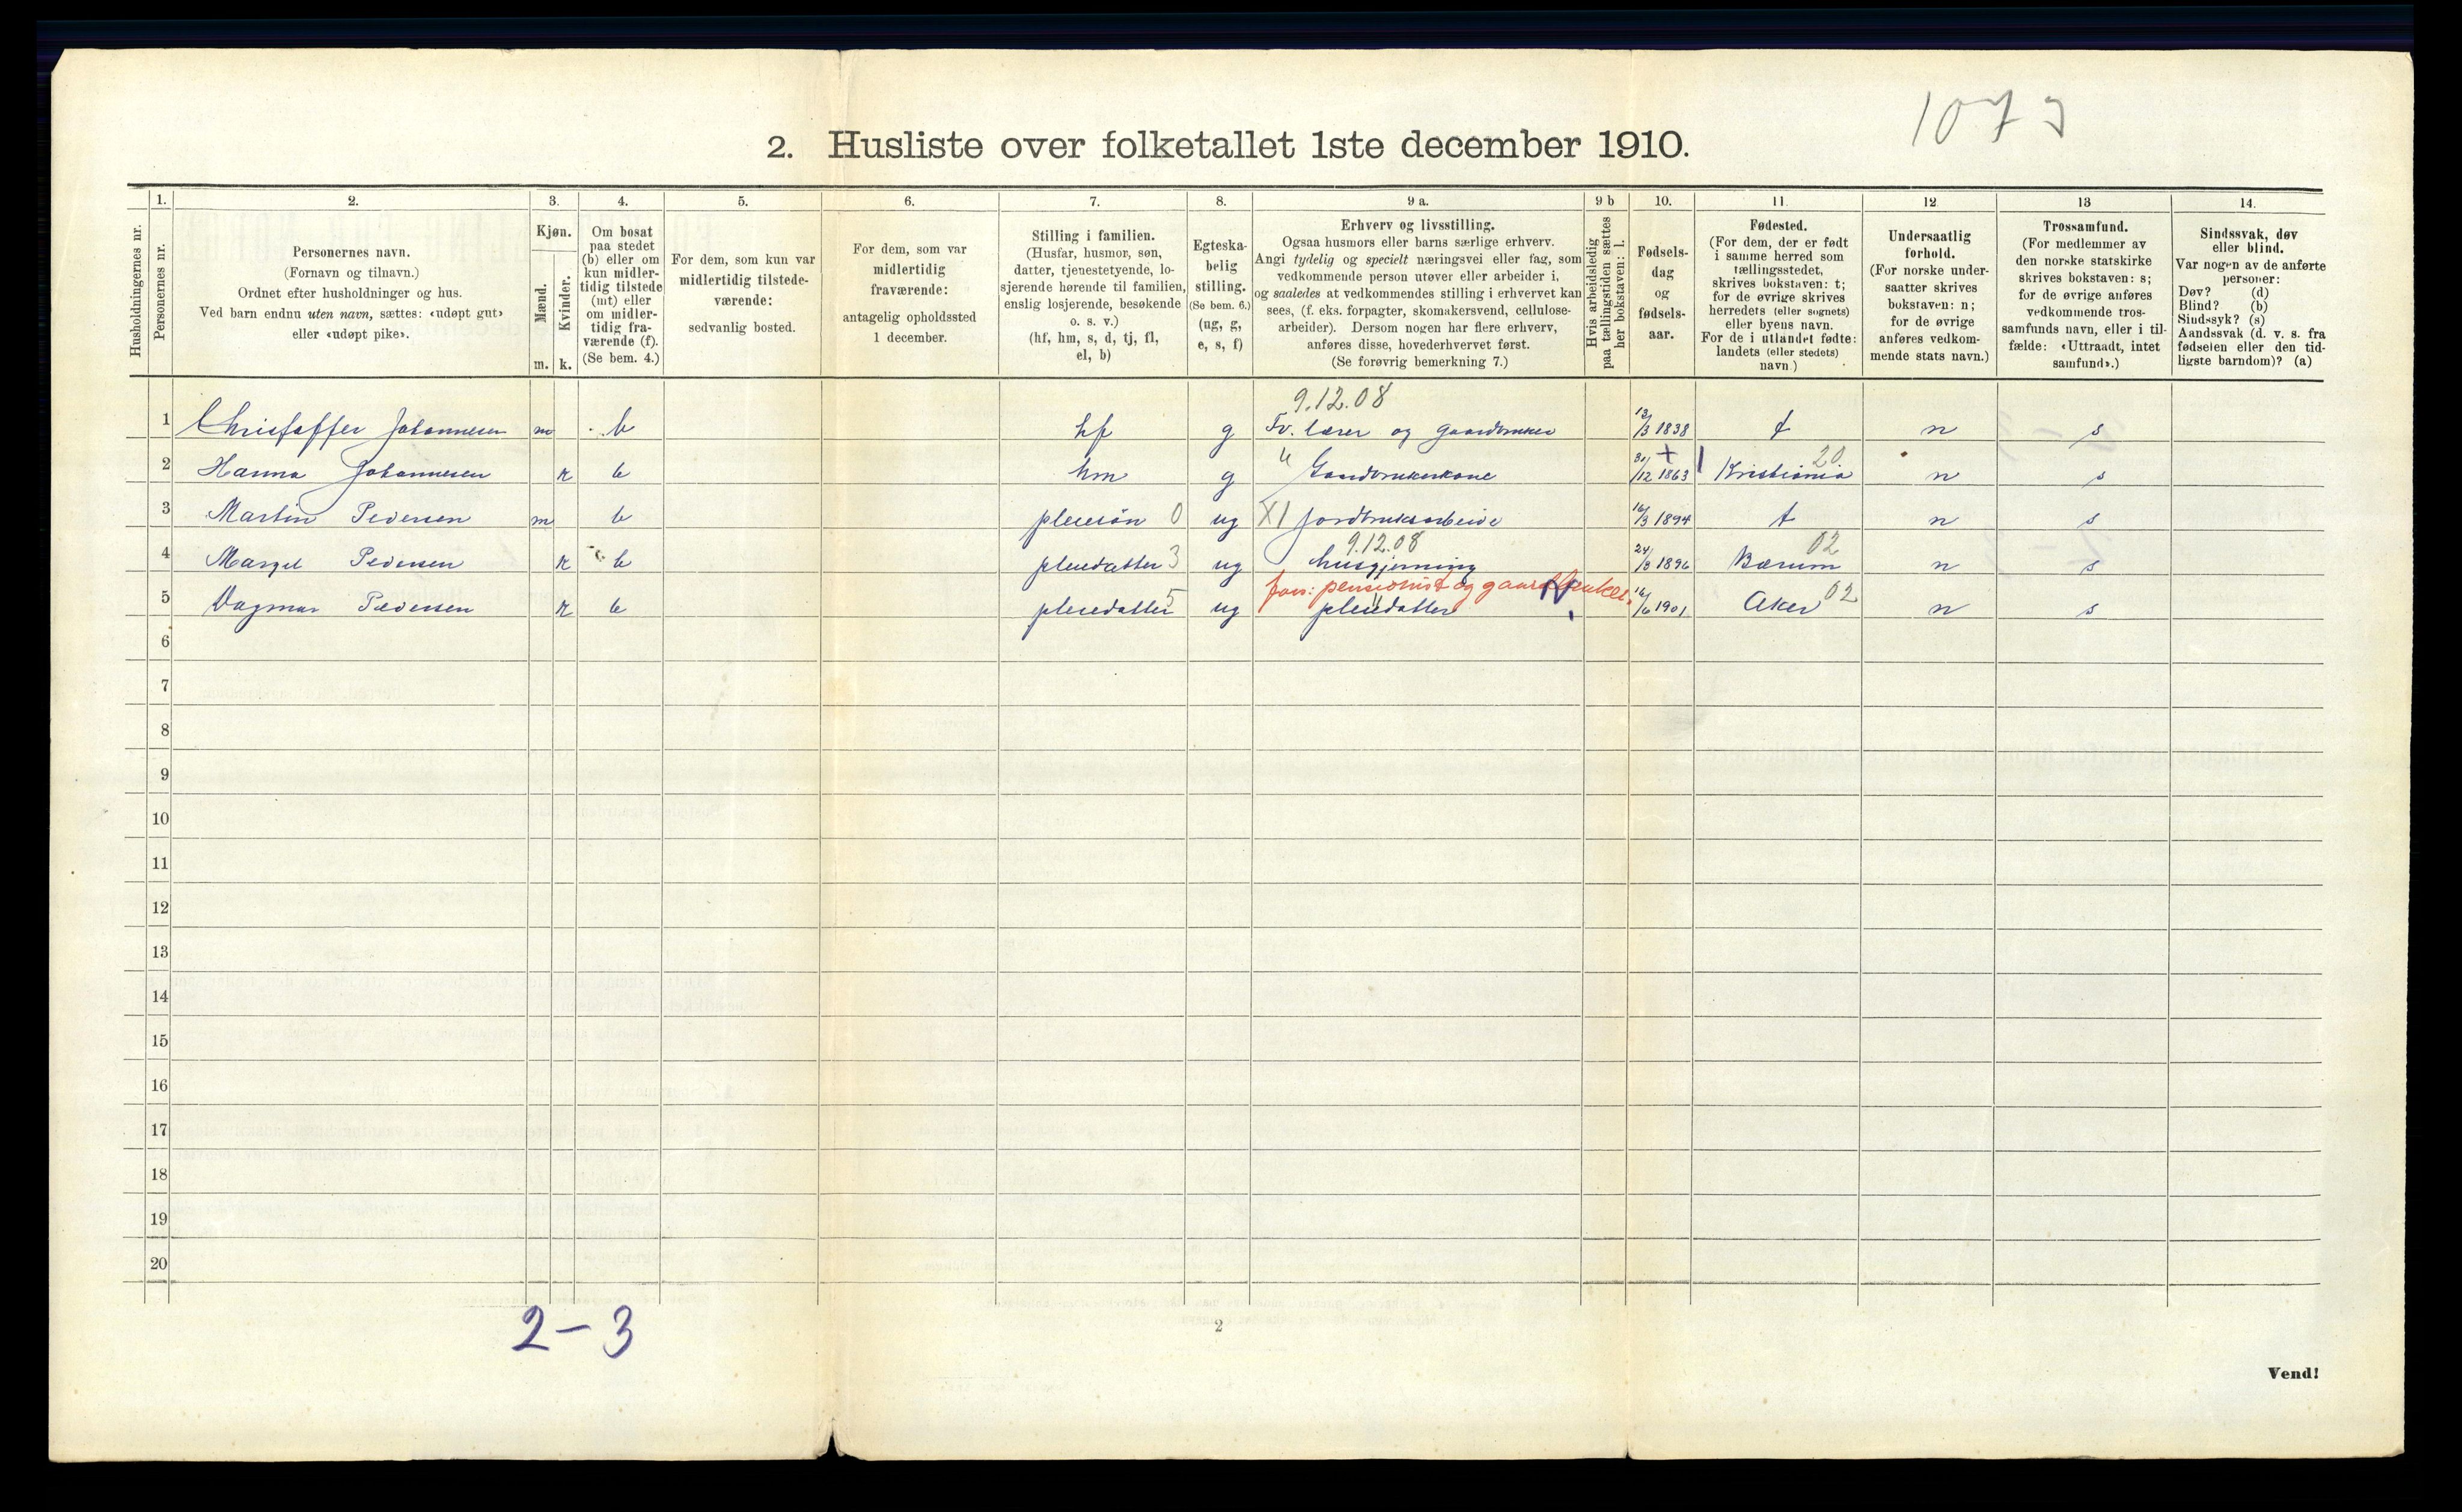 1073
2. Husliste over folketallet 1ste december 1910.
Husholdningernes nr.
1.
Personernes nr.
2.
Personernes navn.
(Fornavn og tilnavn.)
Ordnet efter husholdninger og hus.
Ved barn endnu uten navn, sættes: «udøpt gut»
eller «udøpt pike».
3.
Kjøn.
Mænd.
Kvinder.
m. k.
4.
Om bosat
paa stedet
(b) eller om
kun midler-
tidig tilstede
(mt) eller
om midler-
tidig fra-
værende (f).
(Se bem. 4.)
5.
For dem, som kun var
midlertidig tilstede-
værende:
sedvanlig bosted.
6.
For dem, som var
midlertidig
fraværende:
antagelig opholdssted
1 december.
7.
Stilling i familien.
(Husfar, husmor, søn,
datter, tjenestetyende, lo-
sjerende hørende til familien,
enslig losjerende, besøkende
o. s. v.)
(hf, hm, s, d, tj, fl,
el, b)
8.
Egteska-
belig
stilling.
(Se bem. 6.)
(ug, g,
e, s, f)
9 a.
Erhverv og livsstilling.
Ogsaa husmors eller barns særlige erhverv.
Angi tydelig og specielt næringsvei eller fag, som
vedkommende person utøver eller arbeider i,
og saaledes at vedkommendes stilling i erhvervet kan
sees, (f. eks. forpagter, skomakersvend, cellulose-
arbeider). Dersom nogen har flere erhverv,
anføres disse, hovederhvervet først.
(Se forøvrig bemerkning 7.)
9 b
Hvis arbeidsledig
paa tællingstiden sættes
her bokstaven: l.
10.
Fødsels-
dag
og
fødsels-
aar.
11.
Fødested.
(For dem, der er født
i samme herred som
tællingsstedet,
skrives bokstaven: t;
for de øvrige skrives
herredets (eller sognets)
eller byens navn.
For de i utlandet fødte:
landets (eller stedets)
navn.)
12.
Undersaatlig
forhold.
(For norske under-
saatter skrives
bokstaven: n;
for de øvrige
anføres vedkom-
mende stats navn.)
13
Trossamfund.
(For medlemmer av
den norske statskirke
skrives bokstaven: s;
for de øvrige anføres
vedkommende tros-
samfunds navn, eller i til-
fælde: «Uttraadt, intet
samfund».)
14.
Sindssvak, døv
eller blind.
Var nogen av de anførte
personer:
Døv? (d)
Blind? (b)
Sindssyk? (s)
Aandssvak (d. v. s. fra
fødselen eller den tid-
ligste barndom)? (a)
9.12.08
1 Christoffer Johannesen m b hf g Fv. lærer og gaardbruker 12/3 1838 t n s
2 Hanna Johannesen k b hm g " Gaardbrukerkone 30/12 1863 + Kristiania 20 n s
3 Martin Pedersen m b pleiesøn 0 ug XI Jordbruksarbeide 16/3 1894 t n s
9.12.08
4 Margit Pedersen k b pleiedatter 3 ug husgjerning 24/8 1896 Bærum 02 n s
fors: pensionist og gaardbruker
5 Dagmar Pedersen k b pleiedatter 5 ug pleiedatter 16/6 1901 Aker 02 n s
6
7
8
9
10
11
12
13
14
15
16
17
18
19
20
2-3
2
Vend!